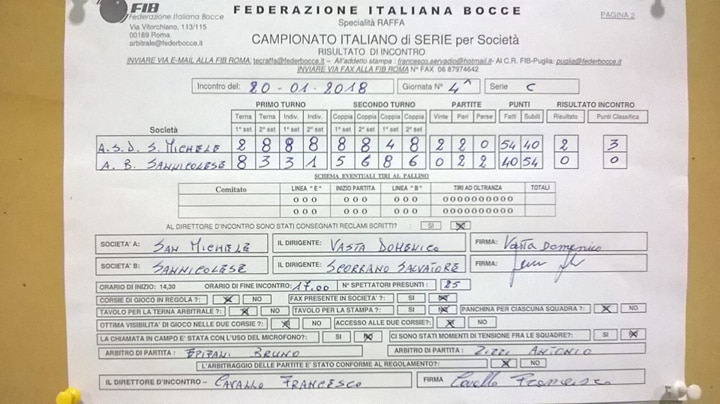 FIB
Federazione Italiana Bocce
Via Vitorchiano, 113/115
00189 Roma
arbitrale@federbocce.it
FEDERAZIONE ITALIANA BOCCE
Specialità RAFFA
PAGINA 2
CAMPIONATO ITALIANO di SERIE per Società
RISULTATO DI INCONTRO
INVIARE VIA E-MAIL ALLA FIB ROMA: tecraffa@federbocce.it – All'addetto stampa : francesco.servadio@hotmail.it- Al C.R. FIB-Puglia: puglia@federbocce.it
INVIARE VIA FAX ALLA FIB ROMA: N° FAX 06 87974642
Incontro del: 20-01-2018 Giornata N° 4^ Serie C
PRIMO TURNO SECONDO TURNO PARTITE PUNTI RISULTATO INCONTRO
Terna Terna Indiv. Indiv. Coppia Coppia Coppia Coppia Vinte Pari Perse Fatti Subiti Risultato Punti Classifica
Società 1° set 2° set 1° set 2° set 1° set 2° set 1° set 2° set
A.S.D. S. MICHELE 2 8 8 8 8 8 4 8 2 2 0 54 40 2 3
A. B. SANNICOLESE 8 3 3 1 5 6 8 6 0 2 2 40 54 0 0
SCHEMA EVENTUALI TIRI AL PALLINO
Comitato LINEA "E" INIZIO PARTITA LINEA "B" TIRI AD OLTRANZA TOTALI
0 0 0 0 0 0 0 0 0 0000000000
0 0 0 0 0 0 0 0 0 0000000000
AL DIRETTORE D'INCONTRO SONO STATI CONSEGNATI RECLAMI SCRITTI? : SI
SOCIETA' A: SAN MICHELE IL DIRIGENTE: VASTA DOMENICO FIRMA: Vasta Domenico
SOCIETA' B: SANNICOLESE IL DIRIGENTE: SCORRANO SALVATORE FIRMA:
ORARIO DI INIZIO: 14,30 ORARIO DI FINE INCONTRO: 17.00 N° SPETTATORI PRESUNTI : 25
CORSIE DI GIOCO IN REGOLA ?: NO FAX PRESENTE IN SOCIETA' ?: SI
TAVOLO PER LA TERNA ARBITRALE ?: NO TAVOLO PER LA STAMPA ?: SI PANCHINA PER CIASCUNA SQUADRA ?: NO
OTTIMA VISIBILITA' DI GIOCO NELLE DUE CORSIE?: NO ACCESSO ALLE DUE CORSIE?: NO
LA CHIAMATA IN CAMPO E' STATA CON L'USO DEL MICROFONO?: SI CI SONO STATI MOMENTI DI TENSIONE FRA LE SQUADRE?: SI
ARBITRO DI PARTITA : EPIFANI BRUNO ARBITRO DI PARTITA : ZIZZI ANTONIO
L'ARBITRAGGIO DELLE PARTITE E' STATO CONFORME AL REGOLAMENTO?: NO
IL DIRETTORE D'INCONTRO - CAVALLO FRANCESCO FIRMA Cavallo Francesco